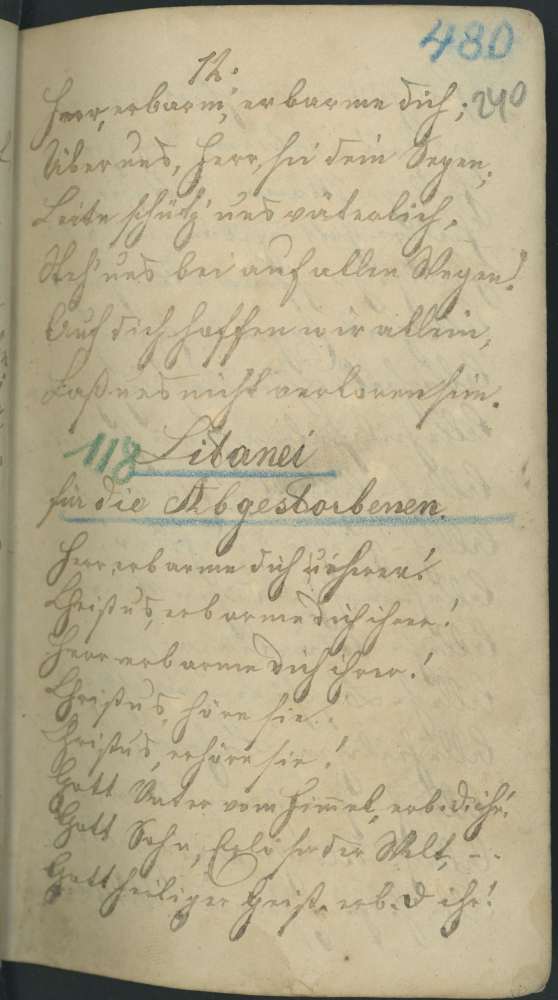 480
12.
Herr, erbarm', erbarme dich; 240
Über uns, Herr, sei dein Segen;
Leite schütz' uns väterlich,
Steh' uns bei auf allen Wegen!
Auf dich hoffen wir allein,
Laß uns nicht verloren sein.
118 Litanei
für die Abgestorbenen.
Herr, erbarme dich ihrer!
Christus, erbarme dich ihrer!
Herr erbarme dich ihrer!
Christus, höre sie!
Christus, erhöre sie!
Gott Vater vom Himmel, erb. d. ihr!
Gott Sohn, Erlöser der Welt, - .
Gott heiliger Geist, erb. d ihr!